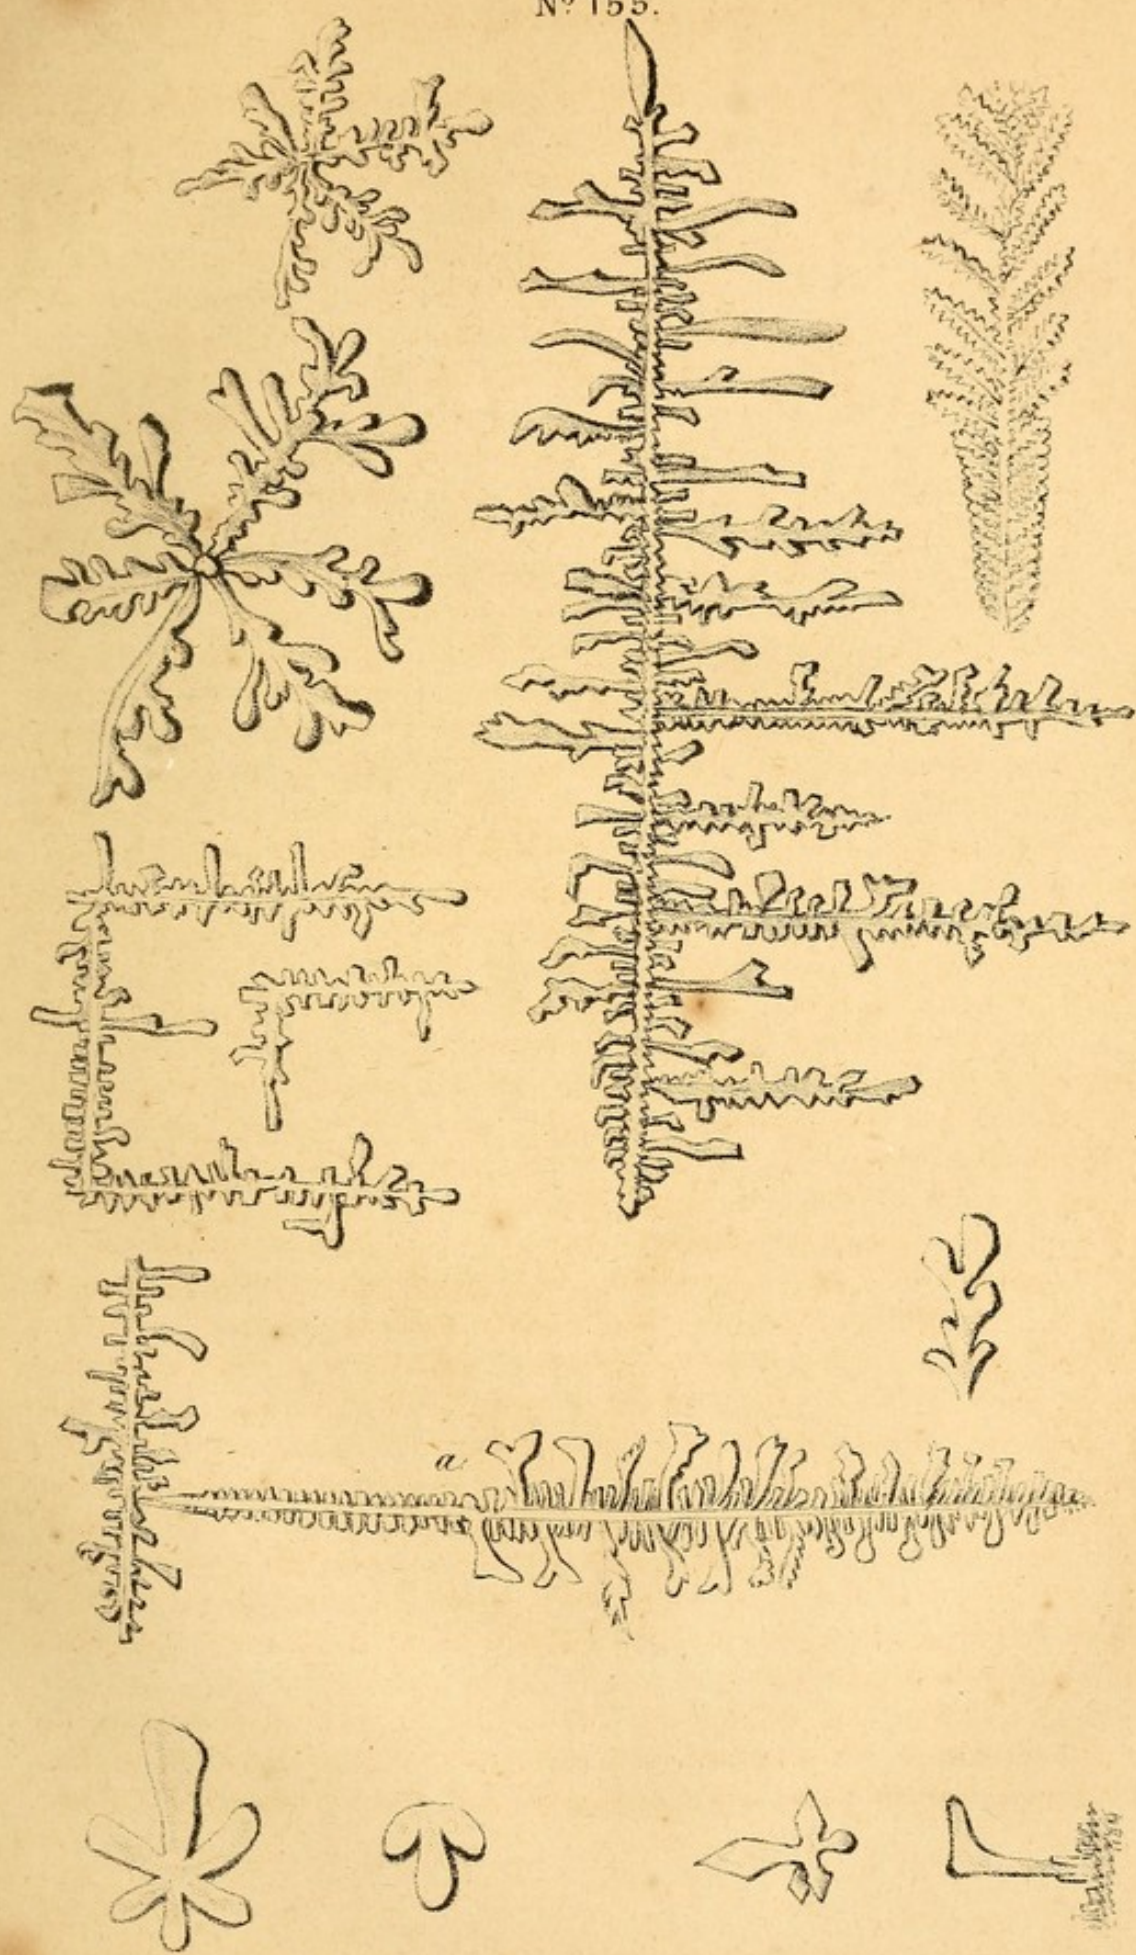 Nº 155.
a